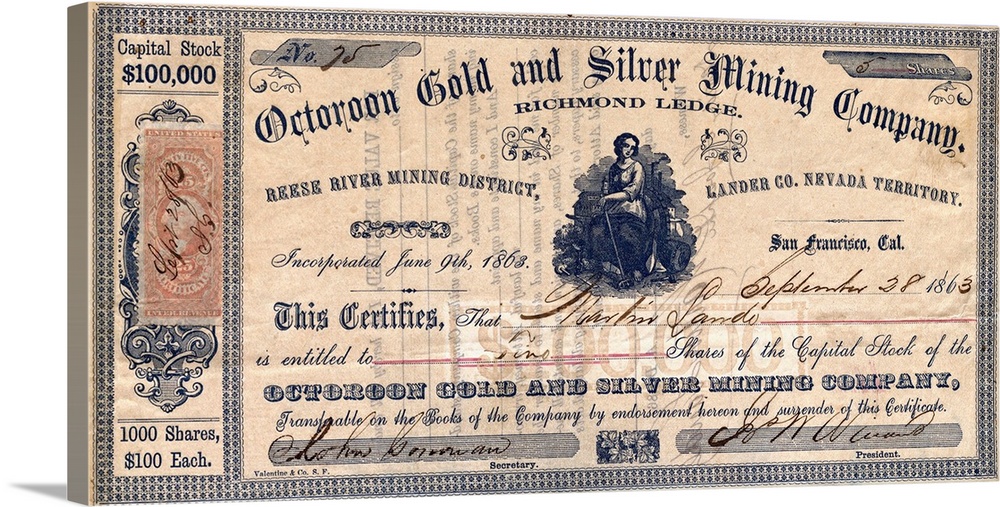 Capital Stock
$100,000
No. 75
5 Shares
Octoroon Gold and Silver Mining Company.
RICHMOND LEDGE.
REESE RIVER MINING DISTRICT,
LANDER CO. NEVADA TERRITORY.
San Francisco, Cal.
Incorporated June 9th, 1863.
September 28 1863
This Certifies, That Martin Sands
is entitled to Five Shares of the Capital Stock of the
OCTOROON GOLD AND SILVER MINING COMPANY,
Transferable on the Books of the Company by endorsement hereon and surrender of this Certificate.
Donovan
Secretary.
President.
1000 Shares,
$100 Each.
Valentine & Co. S. F.
UNITED STATES
Sept 28/63
25
CERTIFICATE
INTER. REVENUE